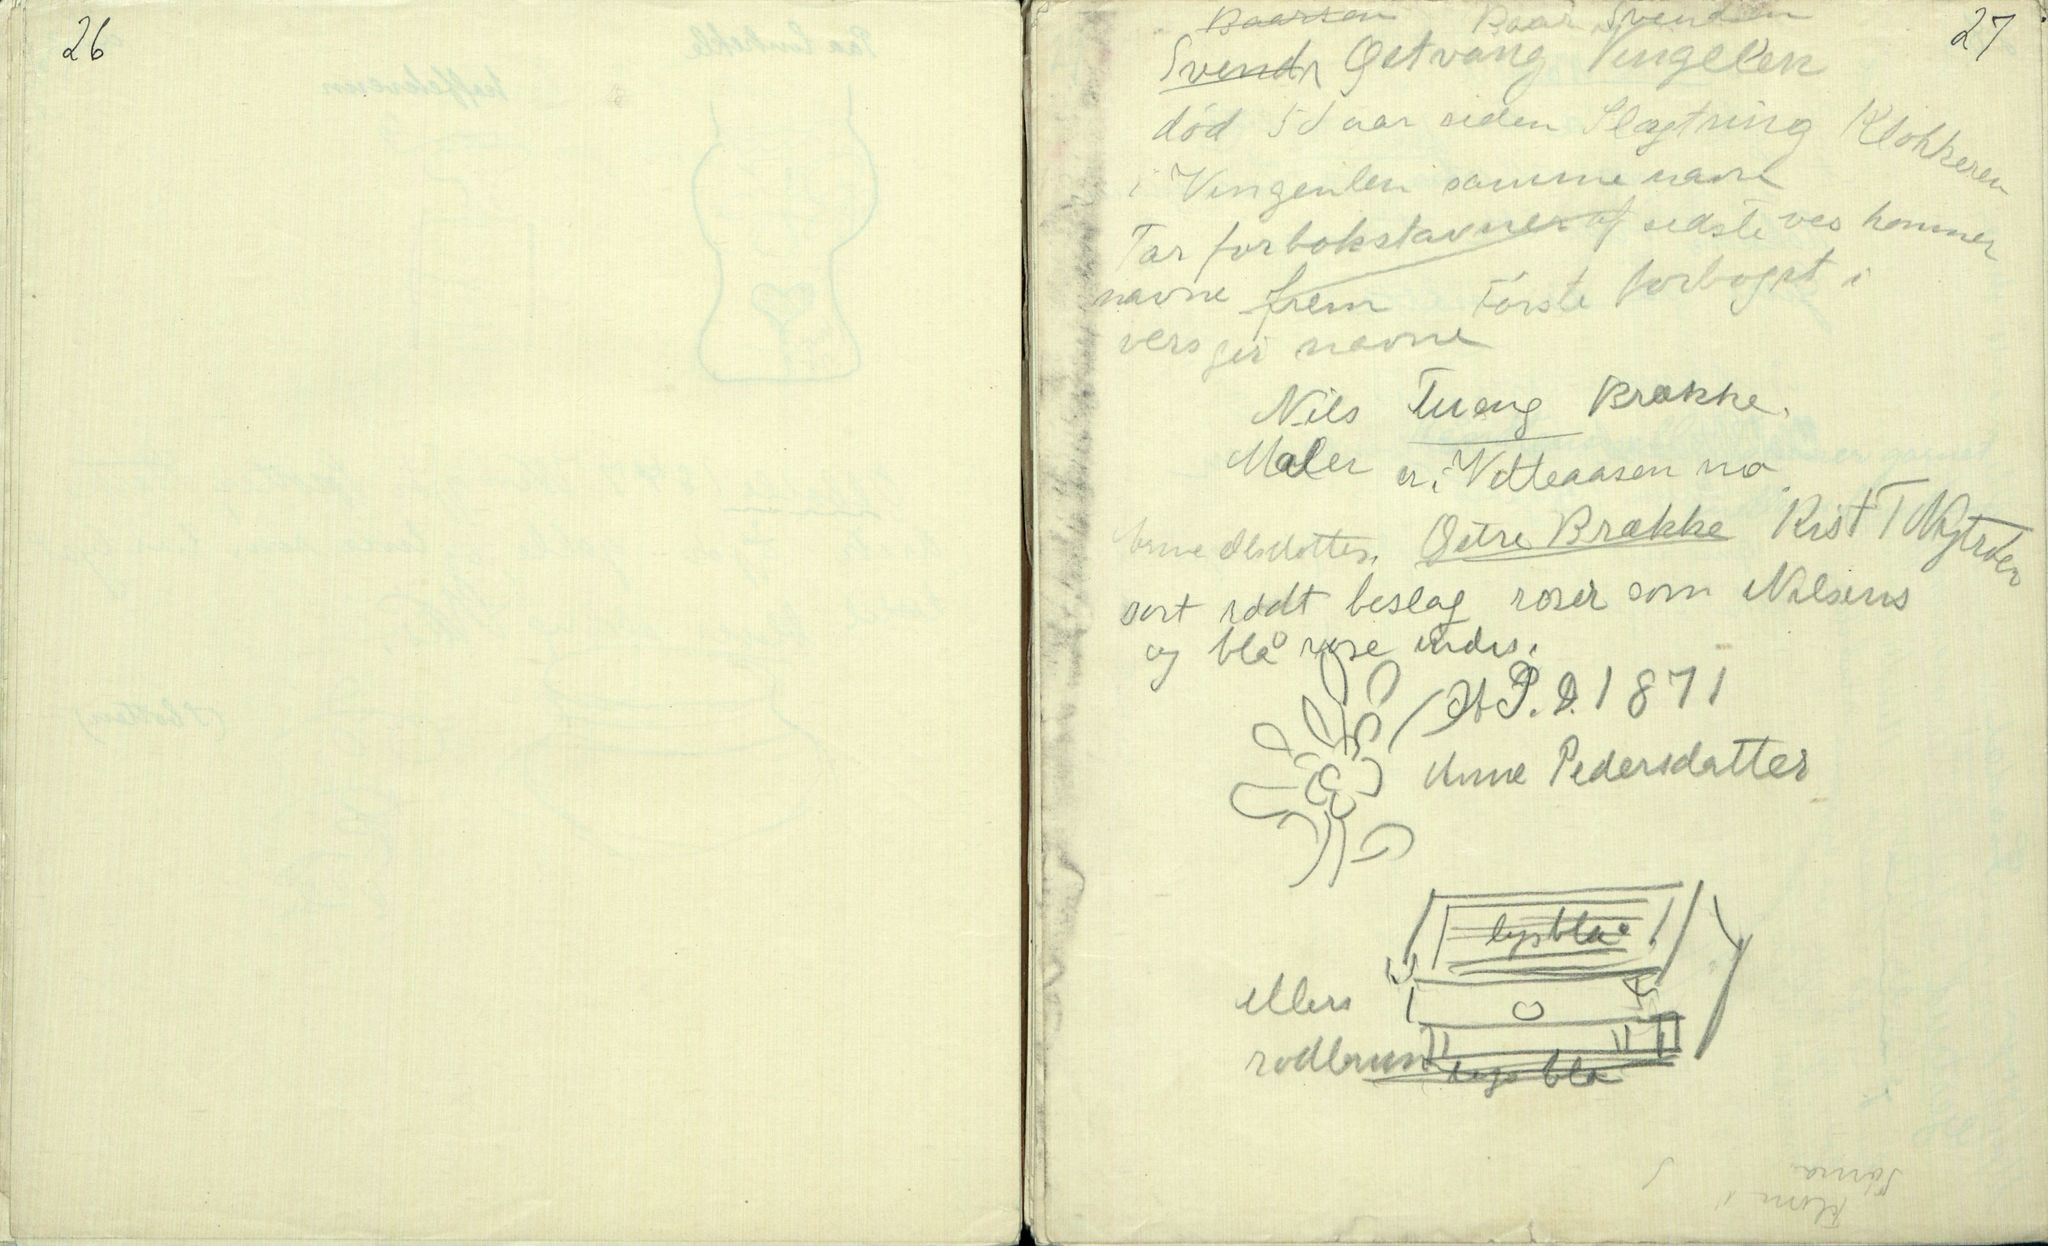 26
27
Baarsen Baar Svenden
Svendr Østvang Vingelen
død 50 aar siden Slagtning Klokkeren
i Vingenlen samme navn
Tar forbokstavner af sidste ves kommer
navne frem Første forbogst i
vers gir navne
Nils Tueng Brække.
Maler er i Volleaasen no
Anne Olsdotter. Østre Brække Krist T Nytrøen
sort rødt beslag roser som Nilsens
og blå rose indv.
A P. D. 1871
Anne Pedersdatter
lysblå
ellers
rødbrun lyse blå
Hom i
Tønna